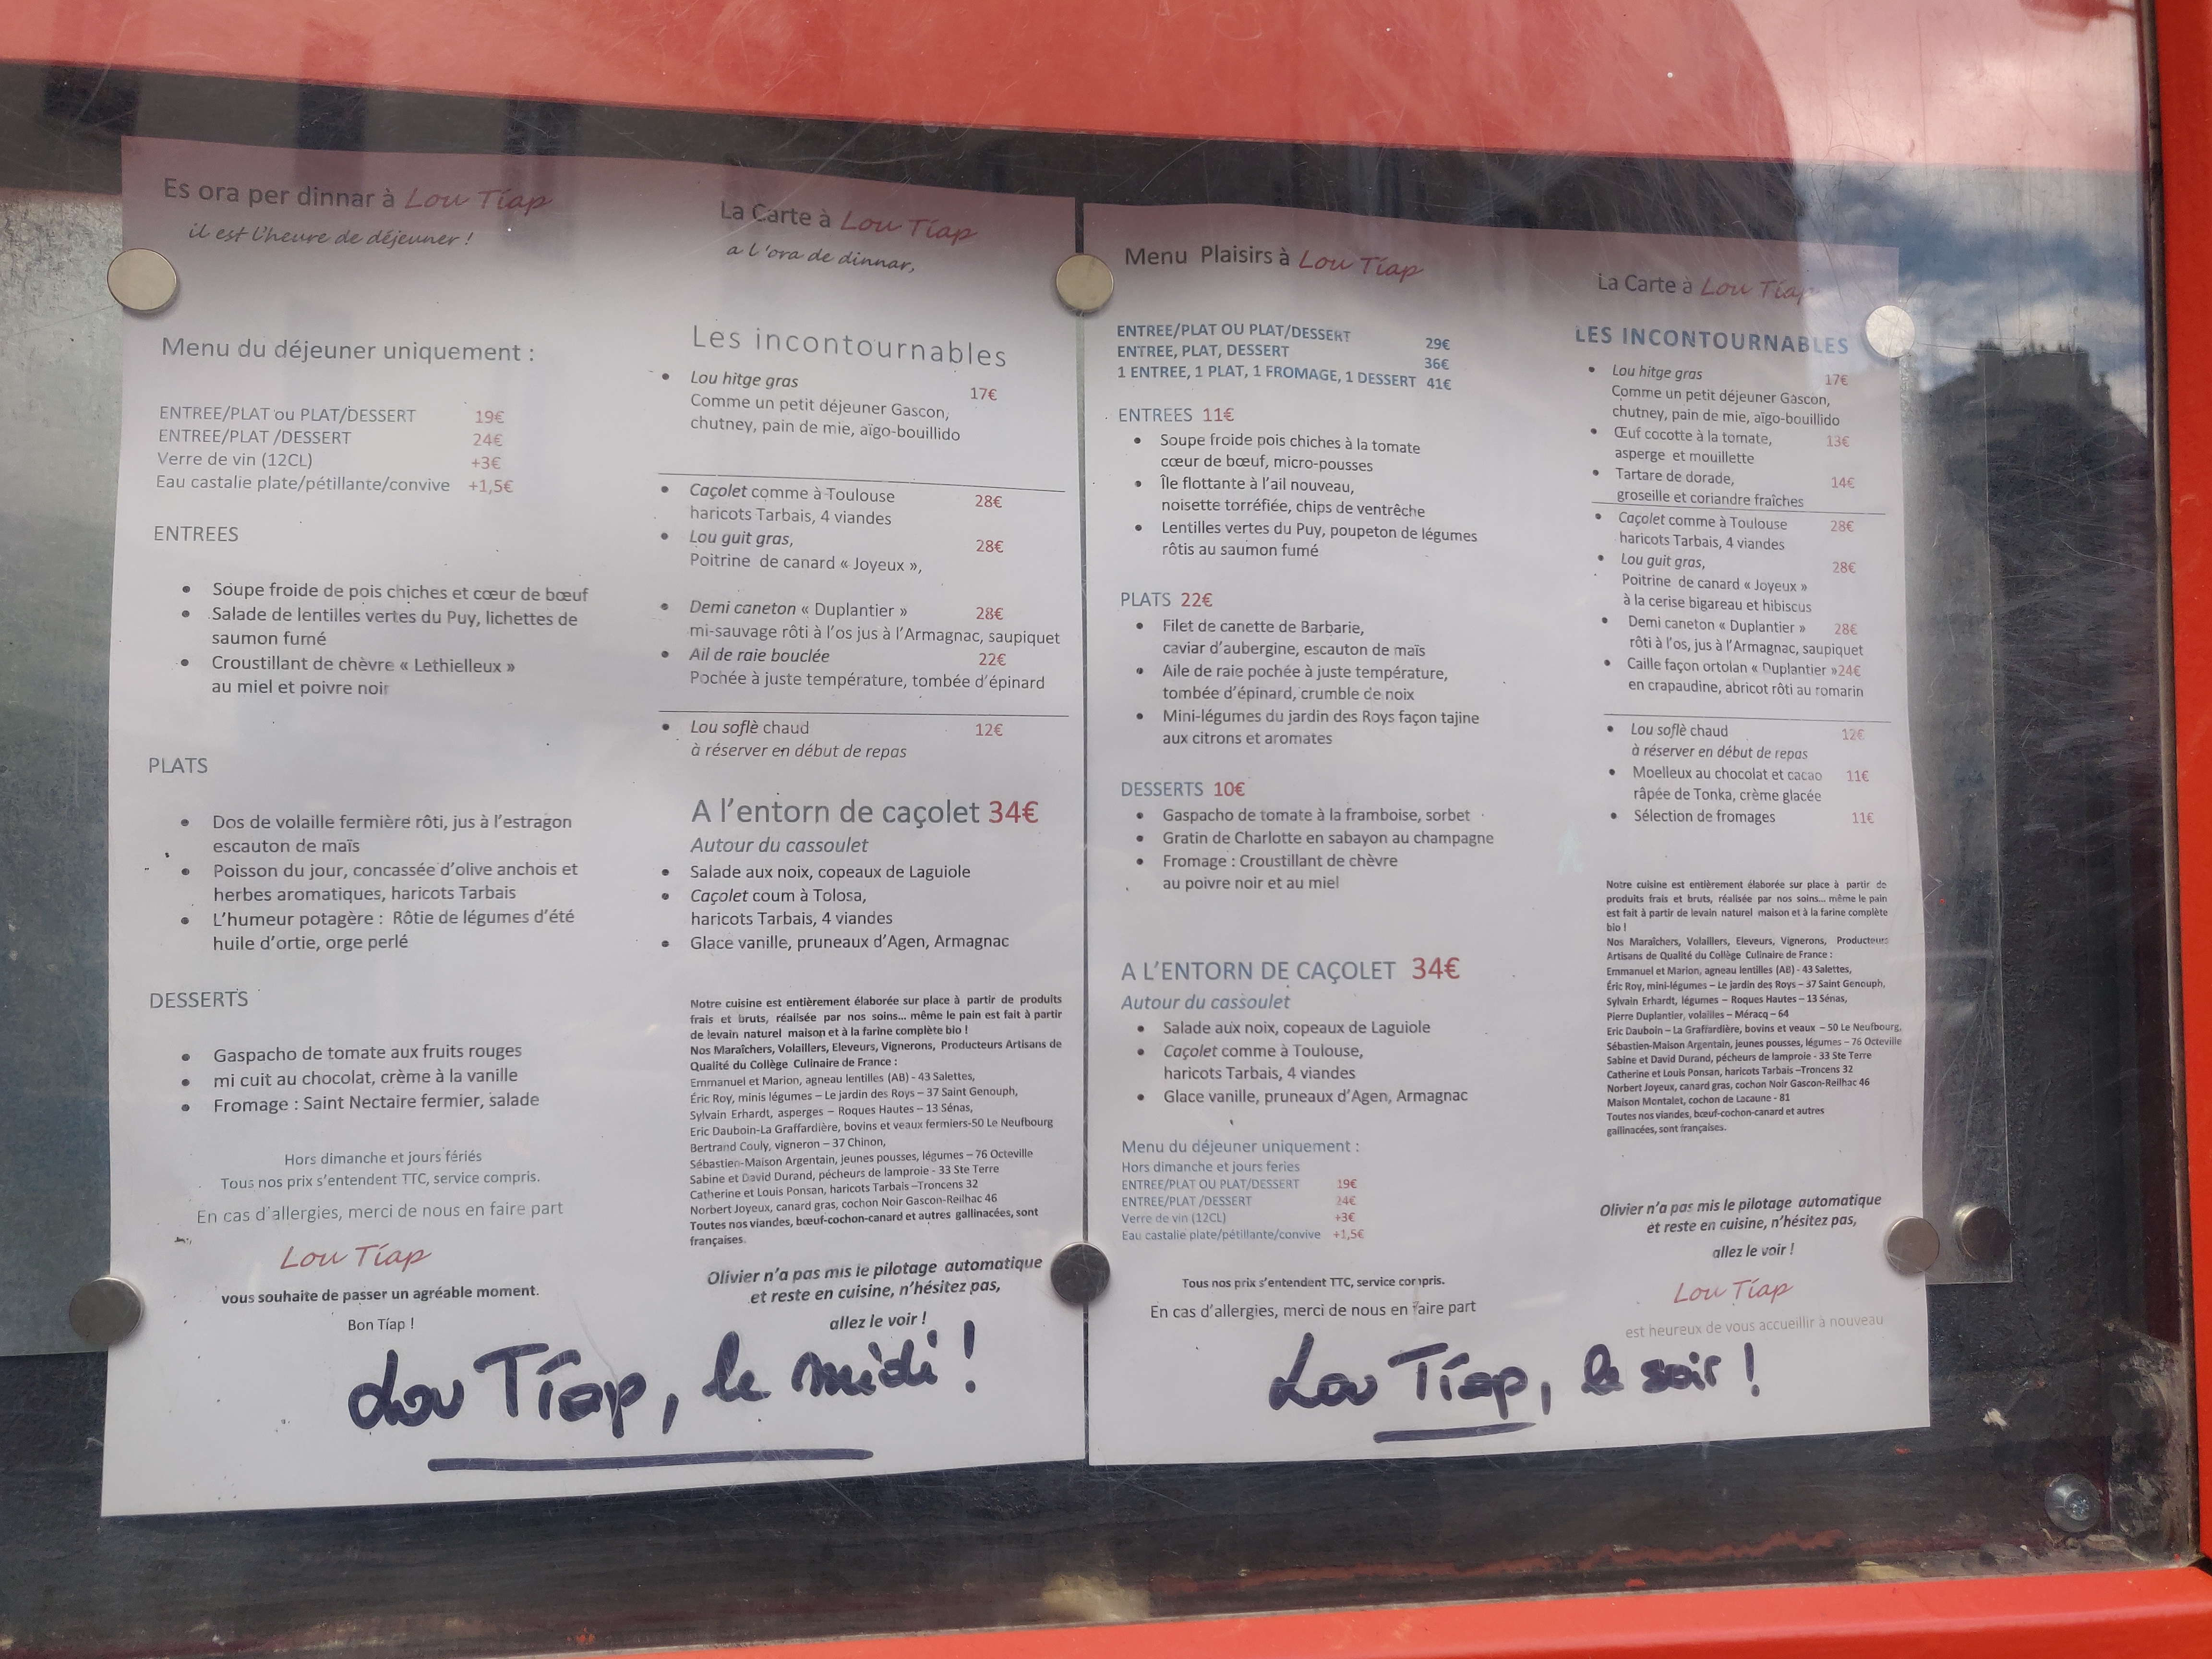 Es ora per dinnar à Lou Tíap
il est l'heure de déjeuner !
Menu du déjeuner uniquement :
ENTREE/PLAT ou PLAT/DESSERT 19€
ENTREE/PLAT /DESSERT 24€
Verre de vin (12CL) +3€
Eau castalie plate/pétillante/convive +1,5€
ENTREES
• Soupe froide de pois chiches et cœur de bœuf
• Salade de lentilles vertes du Puy, lichettes de
saumon fumé
• Croustillant de chèvre « Lethielleux »
au miel et poivre noir
PLATS
• Dos de volaille fermière rôti, jus à l'estragon
escauton de maïs
• Poisson du jour, concassée d'olive anchois et
herbes aromatiques, haricots Tarbais
• L'humeur potagère : Rôtie de légumes d'été
huile d'ortie, orge perlé
DESSERTS
• Gaspacho de tomate aux fruits rouges
• mi cuit au chocolat, crème à la vanille
• Fromage : Saint Nectaire fermier, salade
Hors dimanche et jours fériés
Tous nos prix s'entendent TTC, service compris.
En cas d'allergies, merci de nous en faire part
Lou Tíap
vous souhaite de passer un agréable moment.
Bon Tíap !
La Carte à Lou Tíap
a l'ora de dinnar,
Les incontournables
• Lou hitge gras 17€
Comme un petit déjeuner Gascon,
chutney, pain de mie, aïgo-bouillido
• Caçolet comme à Toulouse 28€
haricots Tarbais, 4 viandes
• Lou guit gras, 28€
Poitrine de canard « Joyeux »,
• Demi caneton « Duplantier » 28€
mi-sauvage rôti à l'os jus à l'Armagnac, saupiquet
• Ail de raie bouclée 22€
Pochée à juste température, tombée d'épinard
• Lou soflè chaud 12€
à réserver en début de repas
A l'entorn de caçolet 34€
Autour du cassoulet
• Salade aux noix, copeaux de Laguiole
• Caçolet coum à Tolosa,
haricots Tarbais, 4 viandes
• Glace vanille, pruneaux d'Agen, Armagnac
Notre cuisine est entièrement élaborée sur place à partir de produits
frais et bruts, réalisée par nos soins... même le pain est fait à partir
de levain naturel maison et à la farine complète bio !
Nos Maraîchers, Volaillers, Eleveurs, Vignerons, Producteurs Artisans de
Qualité du Collège Culinaire de France :
Emmanuel et Marion, agneau lentilles (AB) - 43 Salettes,
Éric Roy, minis légumes – Le jardin des Roys – 37 Saint Genouph,
Sylvain Erhardt, asperges – Roques Hautes – 13 Sénas,
Eric Dauboin-La Graffardière, bovins et veaux fermiers-50 Le Neufbourg
Bertrand Couly, vigneron – 37 Chinon,
Sébastien-Maison Argentain, jeunes pousses, légumes – 76 Octeville
Sabine et David Durand, pécheurs de lamproie - 33 Ste Terre
Catherine et Louis Ponsan, haricots Tarbais –Troncens 32
Norbert Joyeux, canard gras, cochon Noir Gascon-Reilhac 46
Toutes nos viandes, bœuf-cochon-canard et autres gallinacées, sont
françaises.
Olivier n'a pas mis le pilotage automatique
et reste en cuisine, n'hésitez pas,
allez le voir !
Lou Tíap, le midi !
Menu Plaisirs à Lou Tíap
ENTREE/PLAT OU PLAT/DESSERT 29€
ENTREE, PLAT, DESSERT 36€
1 ENTREE, 1 PLAT, 1 FROMAGE, 1 DESSERT 41€
ENTREES 11€
• Soupe froide pois chiches à la tomate
cœur de bœuf, micro-pousses
• Île flottante à l'ail nouveau,
noisette torréfiée, chips de ventrêche
• Lentilles vertes du Puy, poupeton de légumes
rôtis au saumon fumé
PLATS 22€
• Filet de canette de Barbarie,
caviar d'aubergine, escauton de maïs
• Aile de raie pochée à juste température,
tombée d'épinard, crumble de noix
• Mini-légumes du jardin des Roys façon tajine
aux citrons et aromates
DESSERTS 10€
• Gaspacho de tomate à la framboise, sorbet
• Gratin de Charlotte en sabayon au champagne
• Fromage : Croustillant de chèvre
au poivre noir et au miel
A L'ENTORN DE CAÇOLET 34€
Autour du cassoulet
• Salade aux noix, copeaux de Laguiole
• Caçolet comme à Toulouse,
haricots Tarbais, 4 viandes
• Glace vanille, pruneaux d'Agen, Armagnac
Menu du déjeuner uniquement :
Hors dimanche et jours feries
ENTREE/PLAT OU PLAT/DESSERT 19€
ENTREE/PLAT /DESSERT 24€
Verre de vin (12CL) +3€
Eau castalie plate/pétillante/convive +1,5€
Tous nos prix s'entendent TTC, service compris.
En cas d'allergies, merci de nous en faire part
La Carte à Lou Tíap
LES INCONTOURNABLES
• Lou hitge gras 17€
Comme un petit déjeuner Gascon,
chutney, pain de mie, aïgo-bouillido
• Œuf cocotte à la tomate, 13€
asperge et mouillette
• Tartare de dorade, 14€
groseille et coriandre fraîches
• Caçolet comme à Toulouse 28€
haricots Tarbais, 4 viandes
• Lou guit gras, 28€
Poitrine de canard « Joyeux »
à la cerise bigareau et hibiscus
• Demi caneton « Duplantier » 28€
rôti à l'os, jus à l'Armagnac, saupiquet
• Caille façon ortolan « Duplantier »24€
en crapaudine, abricot rôti au romarin
• Lou soflè chaud 12€
à réserver en début de repas
• Moelleux au chocolat et cacao 11€
râpée de Tonka, crème glacée
• Sélection de fromages 11€
Notre cuisine est entièrement élaborée sur place à partir de
produits frais et bruts, réalisée par nos soins... même le pain
est fait à partir de levain naturel maison et à la farine complète
bio !
Nos Maraîchers, Volaillers, Eleveurs, Vignerons, Producteurs
Artisans de Qualité du Collège Culinaire de France :
Emmanuel et Marion, agneau lentilles (AB) - 43 Salettes,
Éric Roy, mini-légumes – Le jardin des Roys – 37 Saint Genouph,
Sylvain Erhardt, légumes – Roques Hautes – 13 Sénas,
Pierre Duplantier, volailles – Méracq – 64
Eric Dauboin – La Graffardière, bovins et veaux – 50 Le Neufbourg,
Sébastien-Maison Argentain, jeunes pousses, légumes – 76 Octeville
Sabine et David Durand, pécheurs de lamproie - 33 Ste Terre
Catherine et Louis Ponsan, haricots Tarbais –Troncens 32
Norbert Joyeux, canard gras, cochon Noir Gascon-Reilhac 46
Maison Montalet, cochon de Lacaune - 81
Toutes nos viandes, bœuf-cochon-canard et autres
gallinacées, sont françaises.
Olivier n'a pas mis le pilotage automatique
et reste en cuisine, n'hésitez pas,
allez le voir !
Lou Tíap
est heureux de vous accueillir à nouveau
Lou Tíap, le soir !